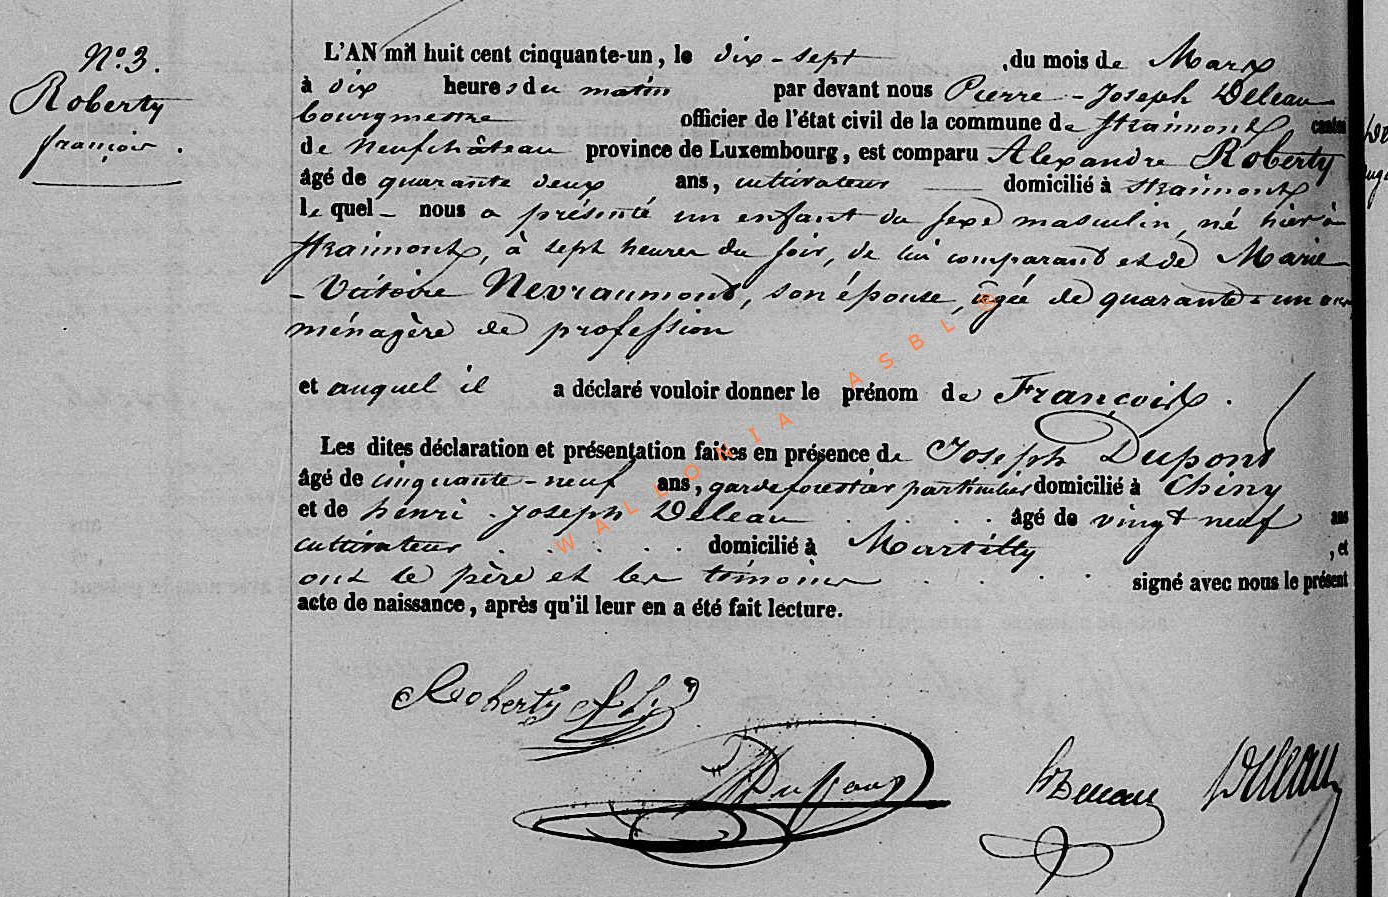 N.o 3.
Roberty
françois.
L'AN mil huit cent cinquante-un, le dix-sept du mois de Mars
à dix heures du matin par devant nous Pierre-Joseph Deleau
bourgmestre officier de l'état civil de la commune de straimont canton
de Neufchâteau province de Luxembourg, est comparu Alexandre Roberty
âgé de quarante deux ans, cultivateur domicilié à straimont
le quel nous a présenté un enfant du sexe masculin, né hier à
straimont, à sept heures du soir, de lui comparant et de Marie
-Victoire Nevraumont, son épouse, âgée de quarante-un ans
ménagère de profession
et auquel il a déclaré vouloir donner le prénom de François.
Les dites déclaration et présentation faites en présence de Joseph Dupont
âgé de cinquante-neuf ans, garde forestier particulier domicilié à Chiny
et de henri-Joseph Deleau âgé de vingt neuf ans
cultivateur domicilié à Martilly, et
ont le père et les témoins signé avec nous le présent
acte de naissance, après qu'il leur en a été fait lecture.
Roberty
Dupont
hDeleau
Deleau
WALLONIA ASBLS